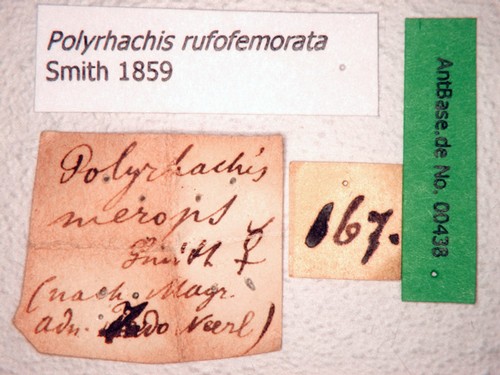 Polyrhachis rufofemorata
Smith 1859
AntBase.de No. 00438
Polyrhachis
merops
Smith ☿
(nach Magr.
adn. Neerl)
167.